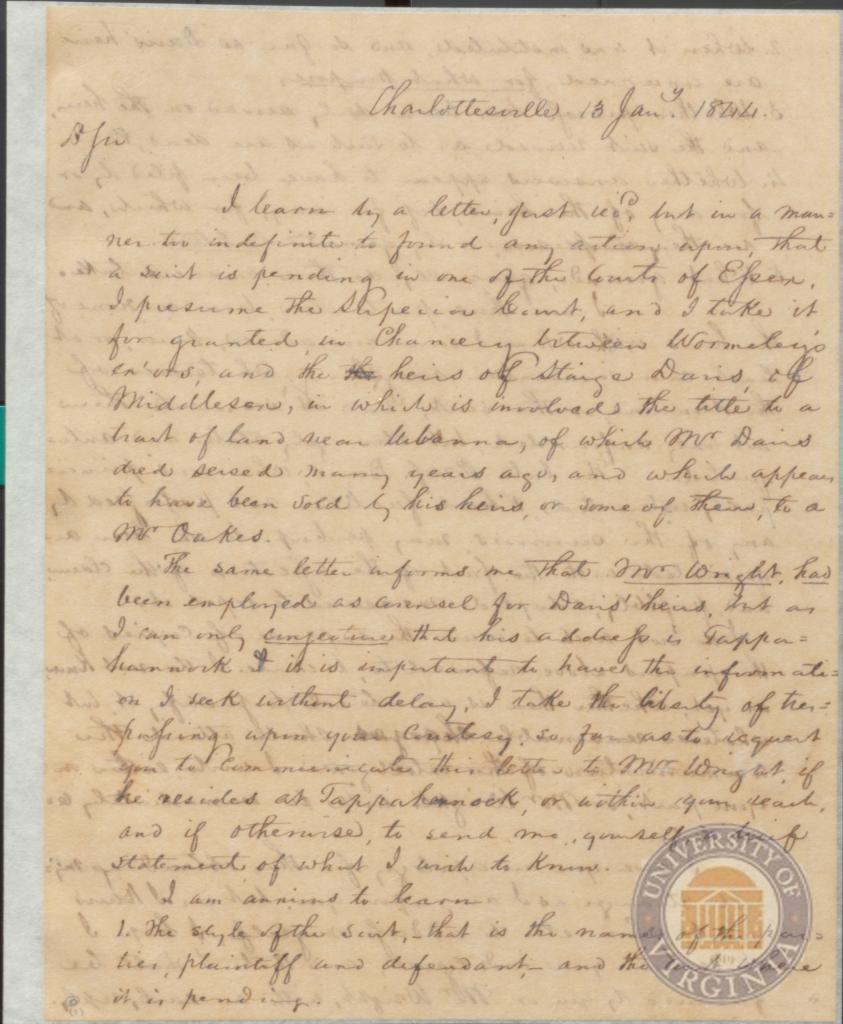 Charlottesville 13 Jany. 1844.
D Sir
I learn by a letter, just recd, but in a man=
ner too indefinite to found any action upon, that
a suit is pending in one of the Courts of Essex,
I presume the Superior Court, and I take it
for granted in Chancery between Wormeley's
ex'ors, and the the heirs of Staige Davis, of
Middlesex, in which is involved the title to a
tract of land near Urbanna, of which Mr Davis
died seised many years ago, and which appears
to have been sold by his heirs, or some of them, to a
Mr Oakes.
The same letter informs me that Mr Wright, had
been employed as counsel for Davis' heirs, but as
I can only conjecture that his address is Tappa=
hannock & it is important to have the informati=
on I seek without delay, I take the liberty of tres=
passing upon your courtesy, so far as to request
you to communicate this letter to Mr Wright, if
he resides at Tappahannock, or within your reach,
and if otherwise, to send me, yourself, a brief
statement of what I wish to know.
I am anxious to learn
1. The style of the suit, - that is the names of the par=
ties, plaintiff and defendant, - and the court where
it is pending.
UNIVERSITY OF VIRGINIA
1819